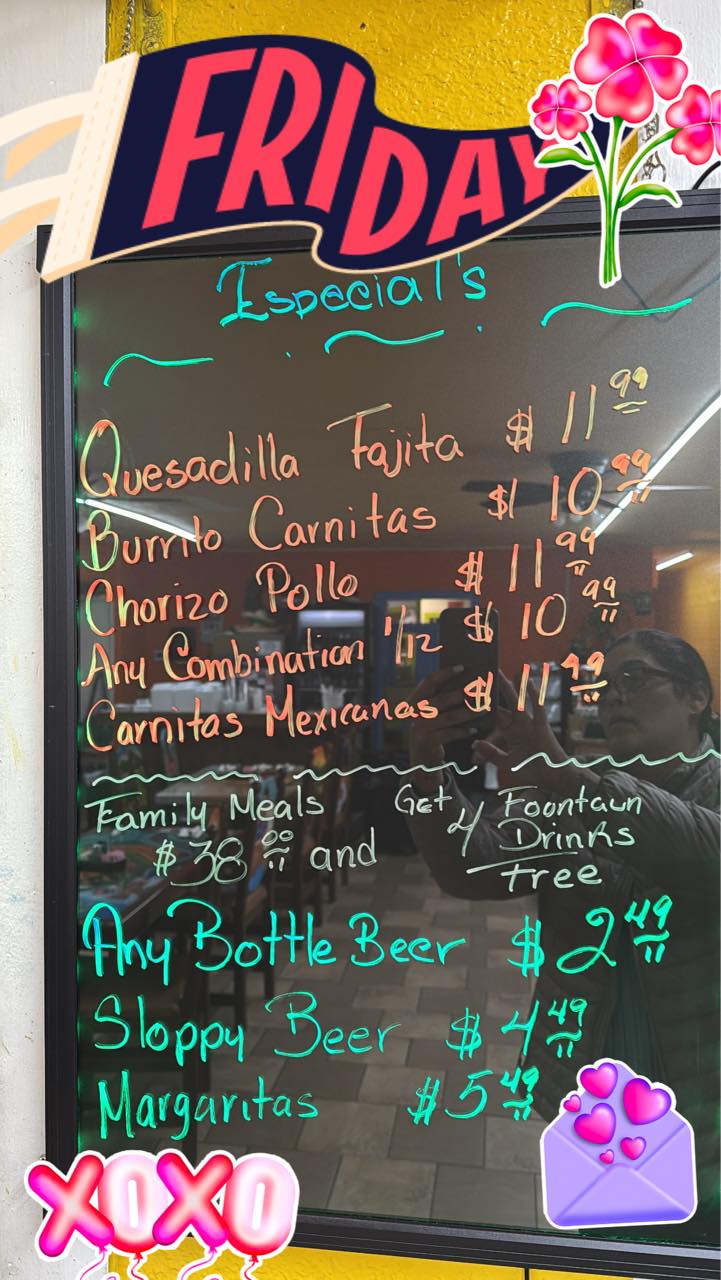 FRIDAY
Especial's
Quesadilla Fajita $ 11 99
Burrito Carnitas $ 10 99
Chorizo Pollo $ 11 99
Any Combination 1/12 $ 10 99
Carnitas Mexicanas $ 11 99
Family Meals Get 4 Foontain
$ 38 00 and Drinks
free
Any Bottle Beer $ 2 49
Sloppy Beer $ 4 49
Margaritas $ 5 49
XOXO